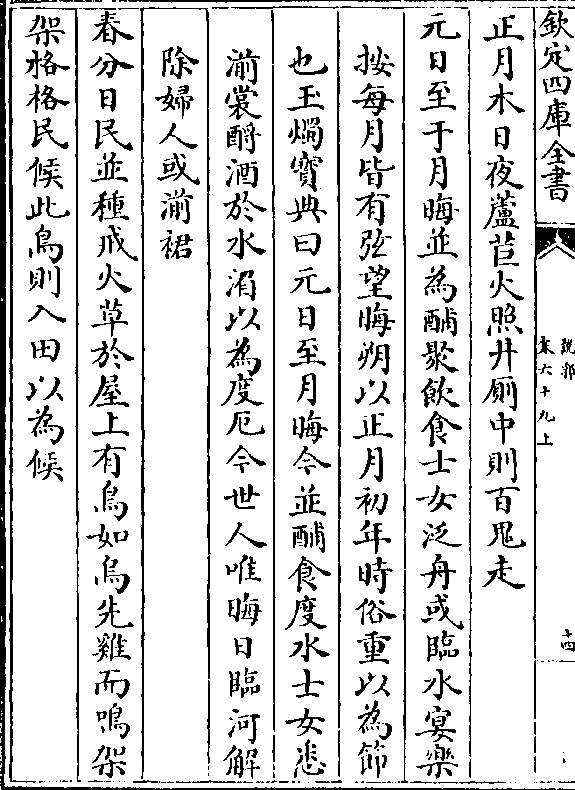 欽定四庫全書
說郛
卷六十九上
十四
正月木日夜蘆苣火照井厠中則百鬼走
元日至于月晦並為酺聚飲食士女泛舟或臨水宴樂
按每月皆有弦望晦朔以正月初年時俗重以為節
也玉燭寶典曰元日至月晦今並酺食度水士女悉
湔裳酹酒於水湄以為度厄今世人唯晦日臨河解
除婦人或湔裙
春分日民並種戒火草於屋上有鳥如烏先雞而鳴架
架格格民候此鳥則入田以為候